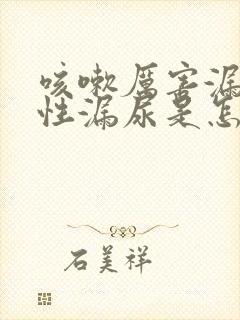 咳嗽厉害漏
性漏尿是怎
石美祥